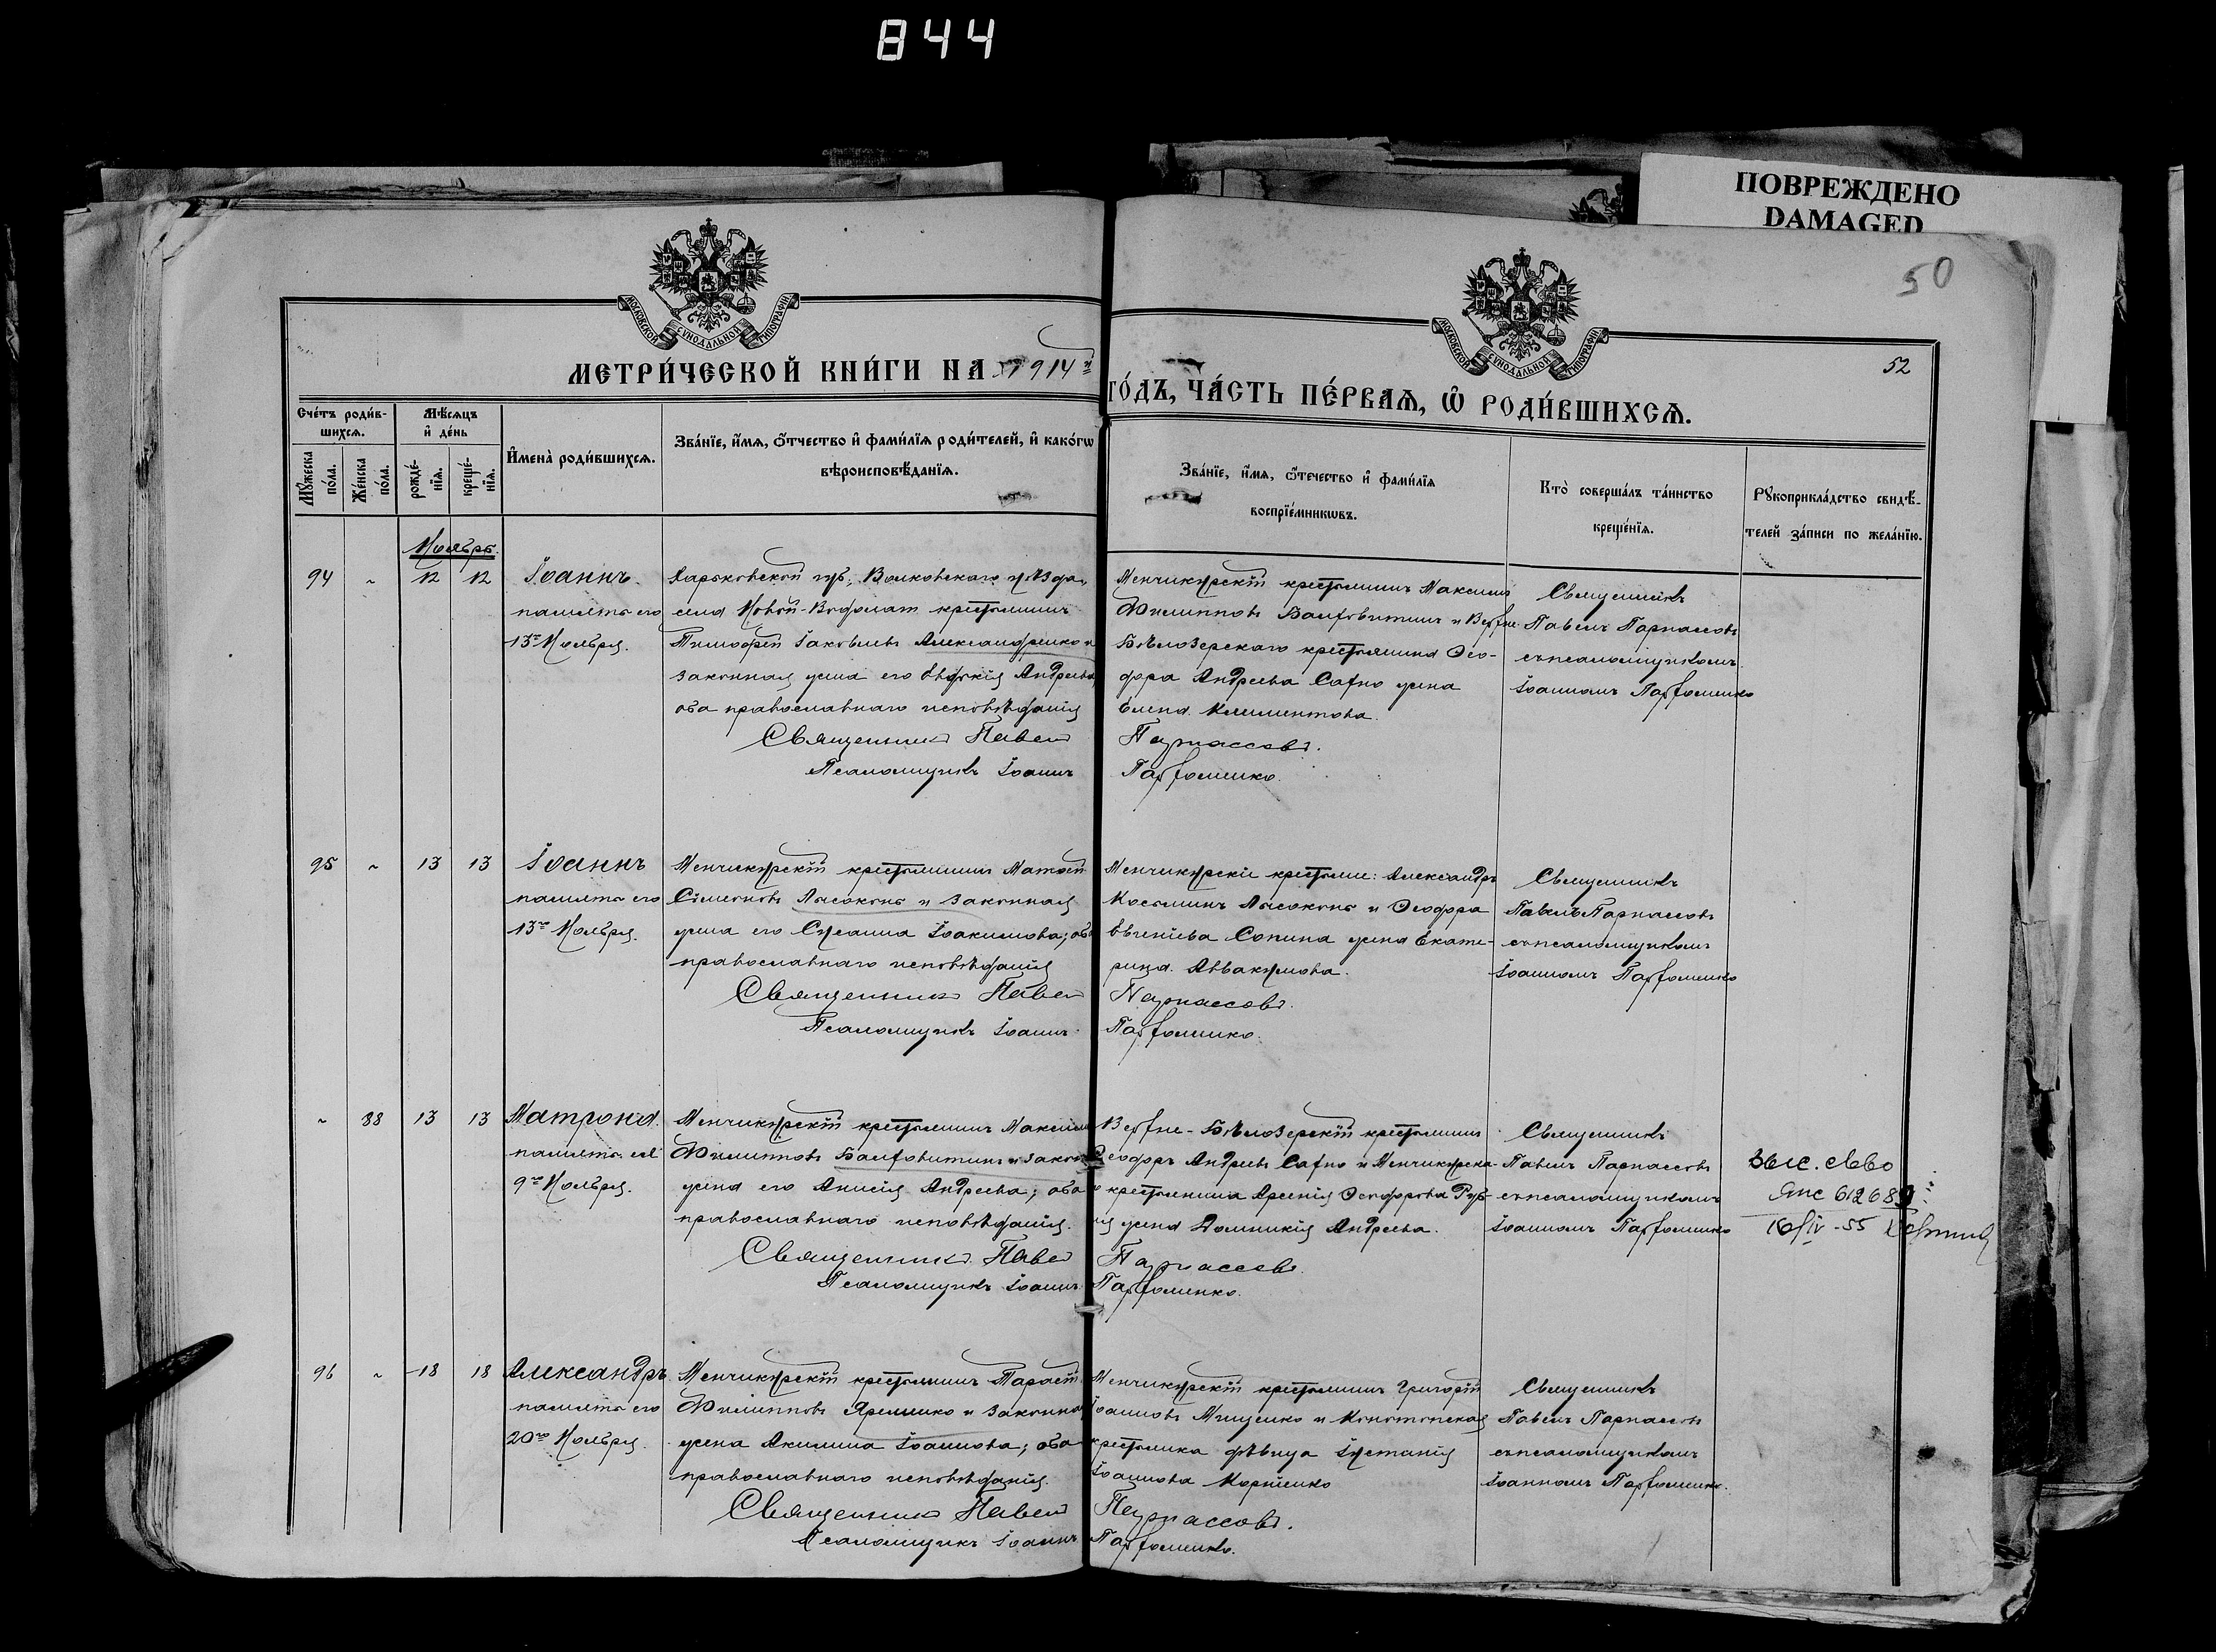 844
ПОВРЕЖДЕНО
DAMAGED
50
52
МОСКОВСКОЙ СУНОДАЛЬНОЙ ТИПОГРАФІИ
МОСКОВСКОЙ СУНОДАЛЬНОЙ ТИПОГРАФІИ
МЕТРИ́ЧЕСКОЙ КНИ́ГИ НА 1914 й
ГО́ДЪ, ЧА́СТЬ ПЕ́РВАѦ, Ѡ РОДИ́ВШИХСѦ.
Сче́тъ роди́в-
шихсѧ.
Мѣ́сѧцъ
и де́нь
Мꙋ́жеска по́ла.
Же́нска по́ла.
рожде́-нїѧ.
креще́-нїѧ.
И҆мена̀ роди́вшихсѧ.
Зва́нїе, и҆́мѧ, ѻ҆́тчество и҆ фами́лїѧ роди́телей, и҆ како́гѡ
вѣроисповѣ́данїѧ.
Зва́нїе, и҆́мѧ, ѻ҆́течество и҆ фами́лїѧ
воспрїе́мникѡвъ.
Кто̀ соверша́лъ та́инство
креще́нїѧ.
Рꙋкоприкла́дство свидѣ́-
телей за́писи по жела́нїю.
Ноябрь.
94 ~ 12 12 Іоаннъ.
память его
13го Ноября.
Харьковской губ., Валковскаго уѣзда,
села Новой-Водолаги крестьянинъ
Тимофей Іаковлевъ Александренко и
законная жена его Евдокія Андреева,
оба православнаго исповѣданія
Священникъ Павел
Псаломщикъ Іоанн
Менчикурскій крестьянинъ Максимъ
Филипповъ и Верхне-
Бѣлозерскаго крестьянина Ѳео-
дора Андреева Сахно жена
Елена Климентова.
Парнассовъ.
Пархоменко.
Священникъ
Павелъ Парнассовъ
съ псаломщикомъ
Іоанномъ Пархоменко
95 ~ 13 13 Іоаннъ
память его
13го Ноября.
Менчикурскій крестьянинъ Матѳей
Симеоновъ Лысоконь и законная
жена его Сусанна Іоакимова; оба
православнаго исповѣданія
Священникъ Павел
Псаломщикъ Іоанн
Менчикурскіе крестьяне: Александръ
Косьминъ Лысоконь и Ѳеодора
Евгеніева Сопина жена Екате-
рина Аввакумова.
Парнассовъ.
Пархоменко.
Священникъ
Павелъ Парнассовъ
съ псаломщикомъ
Іоанномъ Пархоменко
~ 88 13 13 Матрона.
память ея
9го Ноября.
Менчикурскій крестьянинъ Максим
Филипповъ и закон
жена его Анисія Андреева; оба
православнаго исповѣданія.
Священникъ Павел
Псаломщикъ Іоанн
Верхне-Бѣлозерскій крестьянинъ
Ѳеодоръ Андреевъ Сахно и Менчикурска-
го крестьянина Арсенія Ѳеодорова Руб-
жена Домникія Андреева.
Парнассовъ
Пархоменко.
Священникъ
Павелъ Парнассовъ
съ псаломщикомъ
Іоанномъ Пархоменко
612689
16/IV-55
96 ~ 18 18 Александръ
память его
20го Ноября.
Менчикурскій крестьянинъ Тарасій
Филипповъ Яременко и законна
жена Акилина Іоаннова; оба
православнаго исповѣданія.
Священникъ Павел
Псаломщикъ Іоаннъ
Менчикурскій крестьянинъ Григорій
Іоанновъ Мищенко и Конотопская
крестьянка дѣвица Іустанія
Іоаннова Корніенко
Парнассовъ.
Пархоменко.
Священникъ
Павелъ Парнассовъ
съ псаломщикомъ
Іоанномъ Пархоменко.